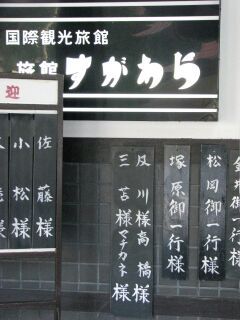 国際観光旅館
旅館 すがわら
迎
佐藤様
小松様
松岡御一行様
塚原御一行様
及川様高橋様
三苫様マチカネ様